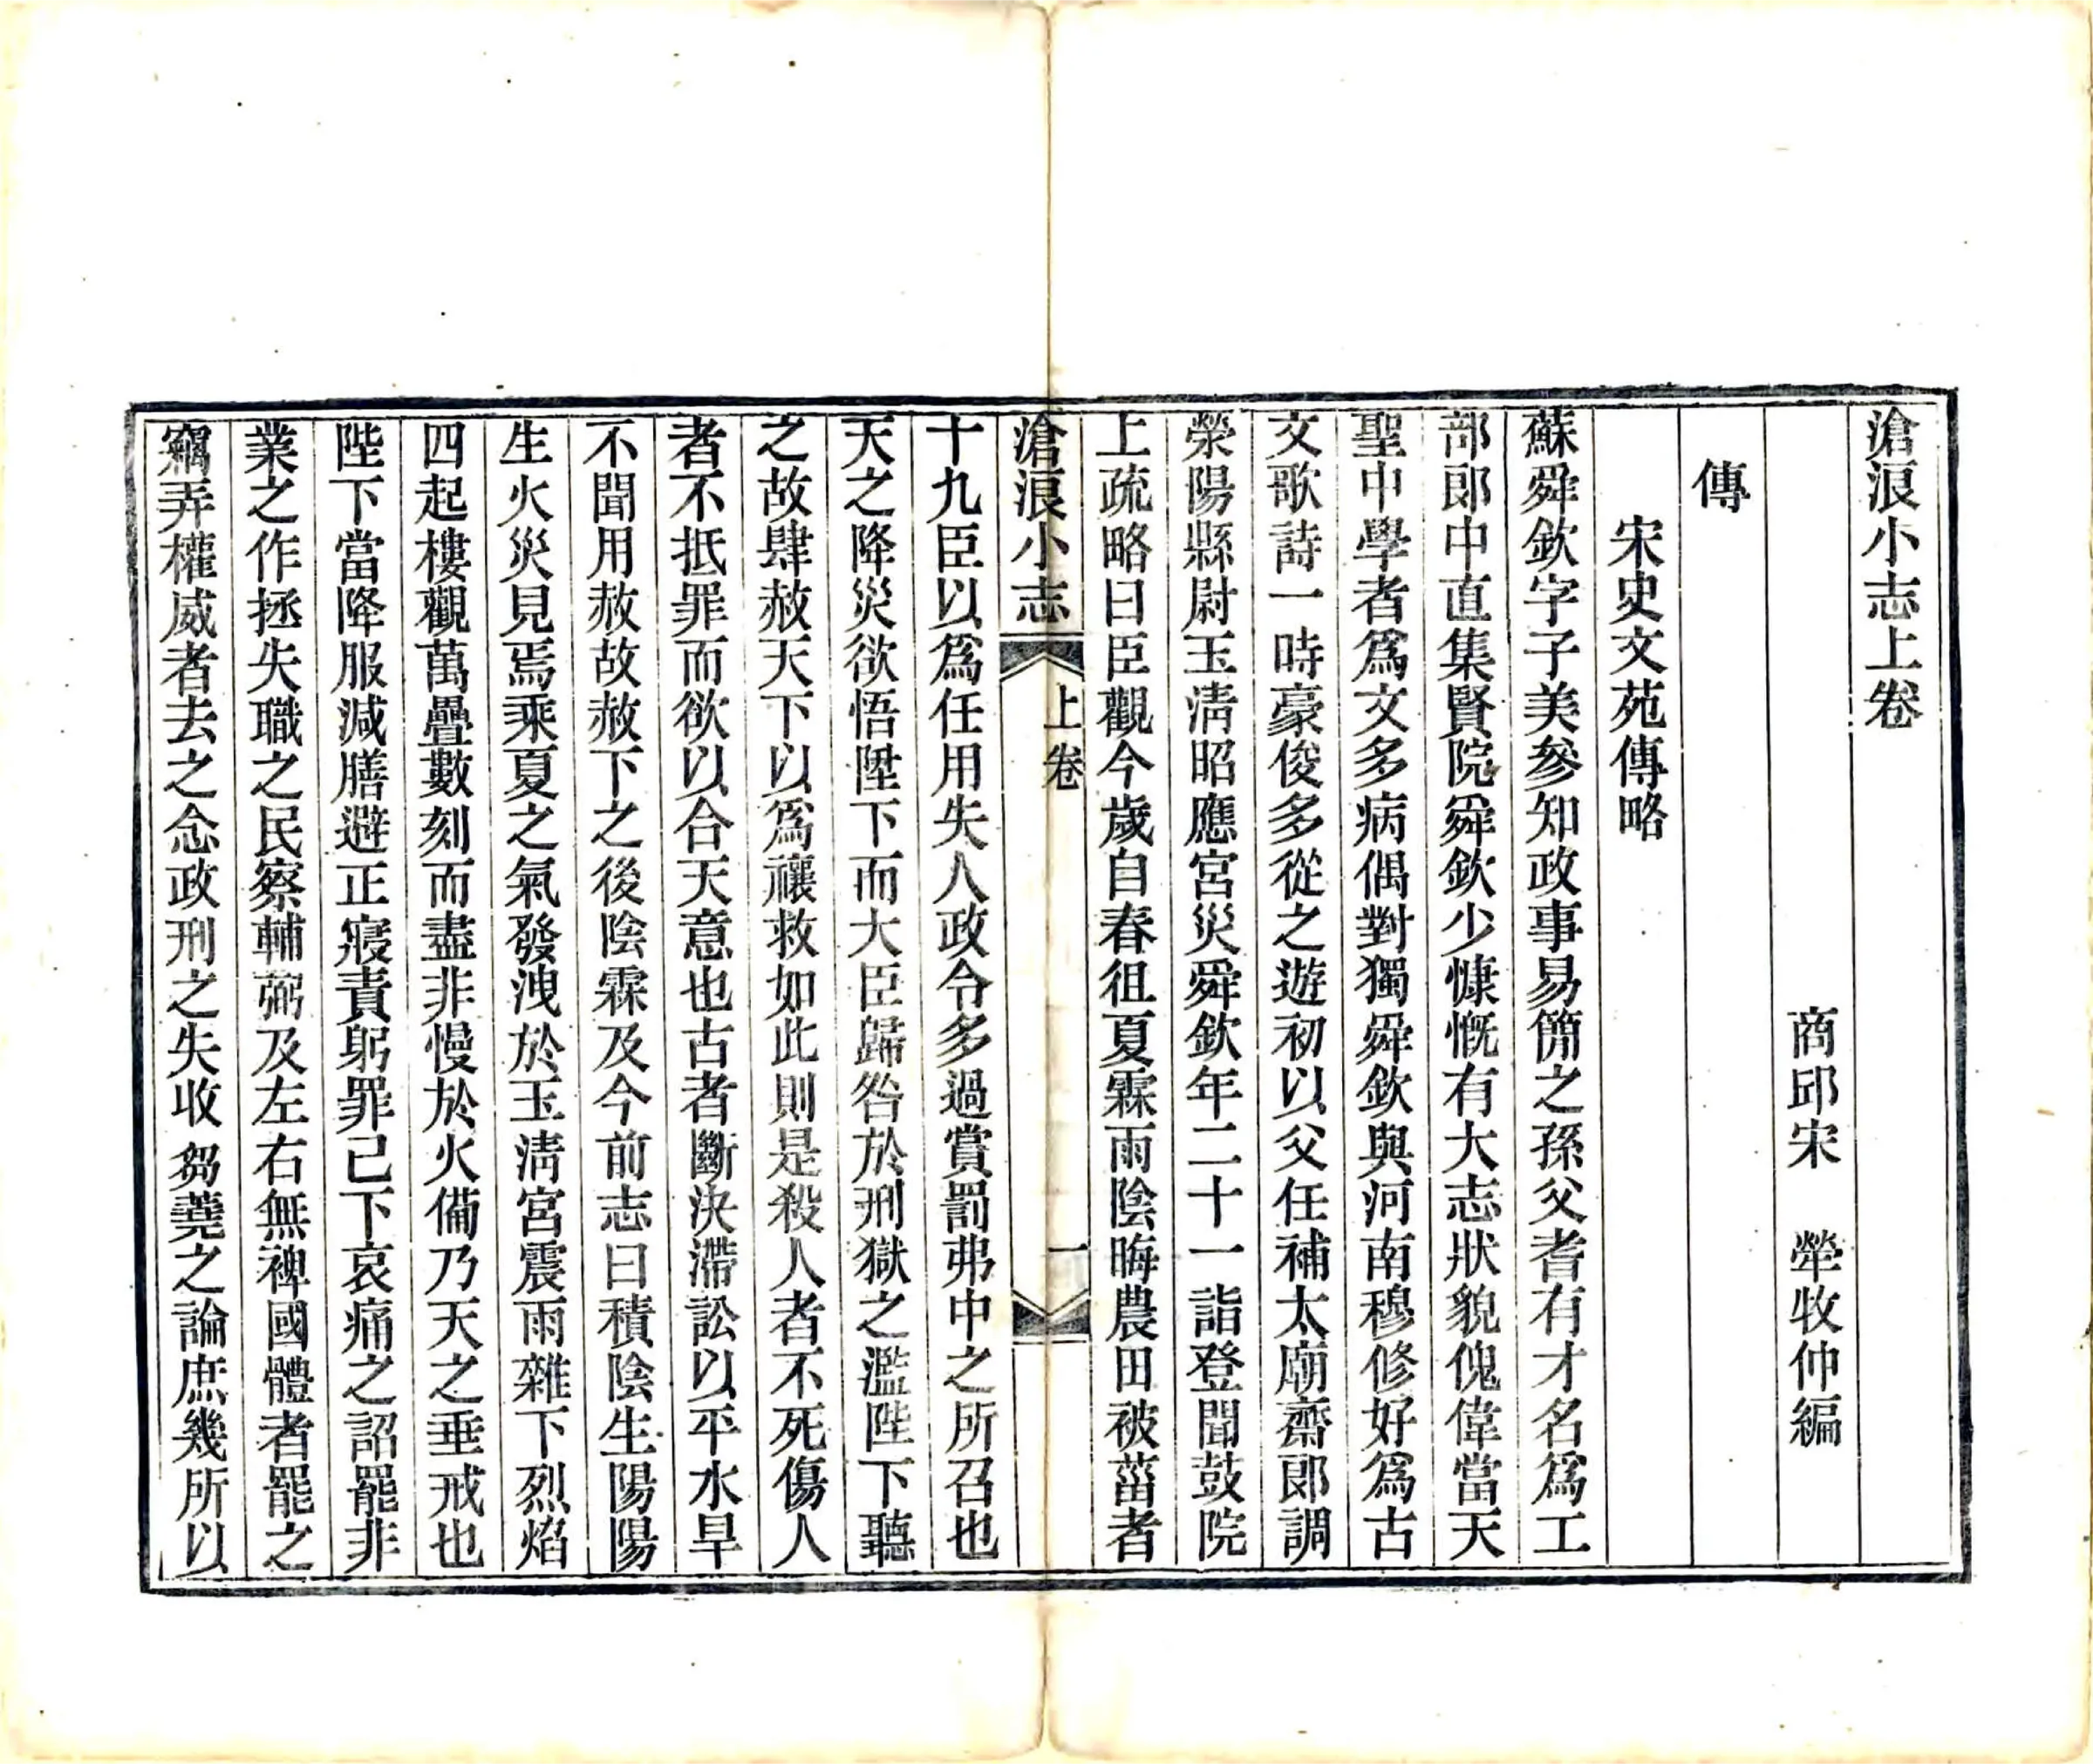 滄浪小志上卷
商邱宋　犖牧仲編
傳
宋史文苑傳略
蘇舜欽字子美參知政事易簡之孫父耆有才名爲工
部郎中直集賢院舜欽少慷慨有大志狀貌傀偉當天
聖中學者爲文多病偶對獨舜欽與河南穆修好爲古
文歌詩一時豪俊多從之遊初以父任補太廟齋郎調
滎陽縣尉玉淸昭應宮災舜欽年二十一詣登聞鼓院
上疏略曰臣觀今歲自春徂夏霖雨陰晦農田被菑者
滄浪小志　上卷　一
十九臣以爲任用失人政令多過賞罰弗中之所召也
天之降災欲悟陛下而大臣歸咎於刑獄之濫陛下聽
之故肆赦天下以爲禳救如此則是殺人者不死傷人
者不抵罪而欲以合天意也古者斷決滯訟以平水旱
不聞用赦故赦下之後陰霖及今前志曰積陰生陽陽
生火災見焉乘夏之氣發洩於玉淸宮震雨雜下烈焰
四起樓觀萬疊數刻而盡非慢於火備乃天之垂戒也
陛下當降服減膳避正寢責躬罪己下哀痛之詔罷非
業之作拯失職之民察輔弼及左右無裨國體者罷之
竊弄權威者去之念政刑之失收芻蕘之論庶幾所以